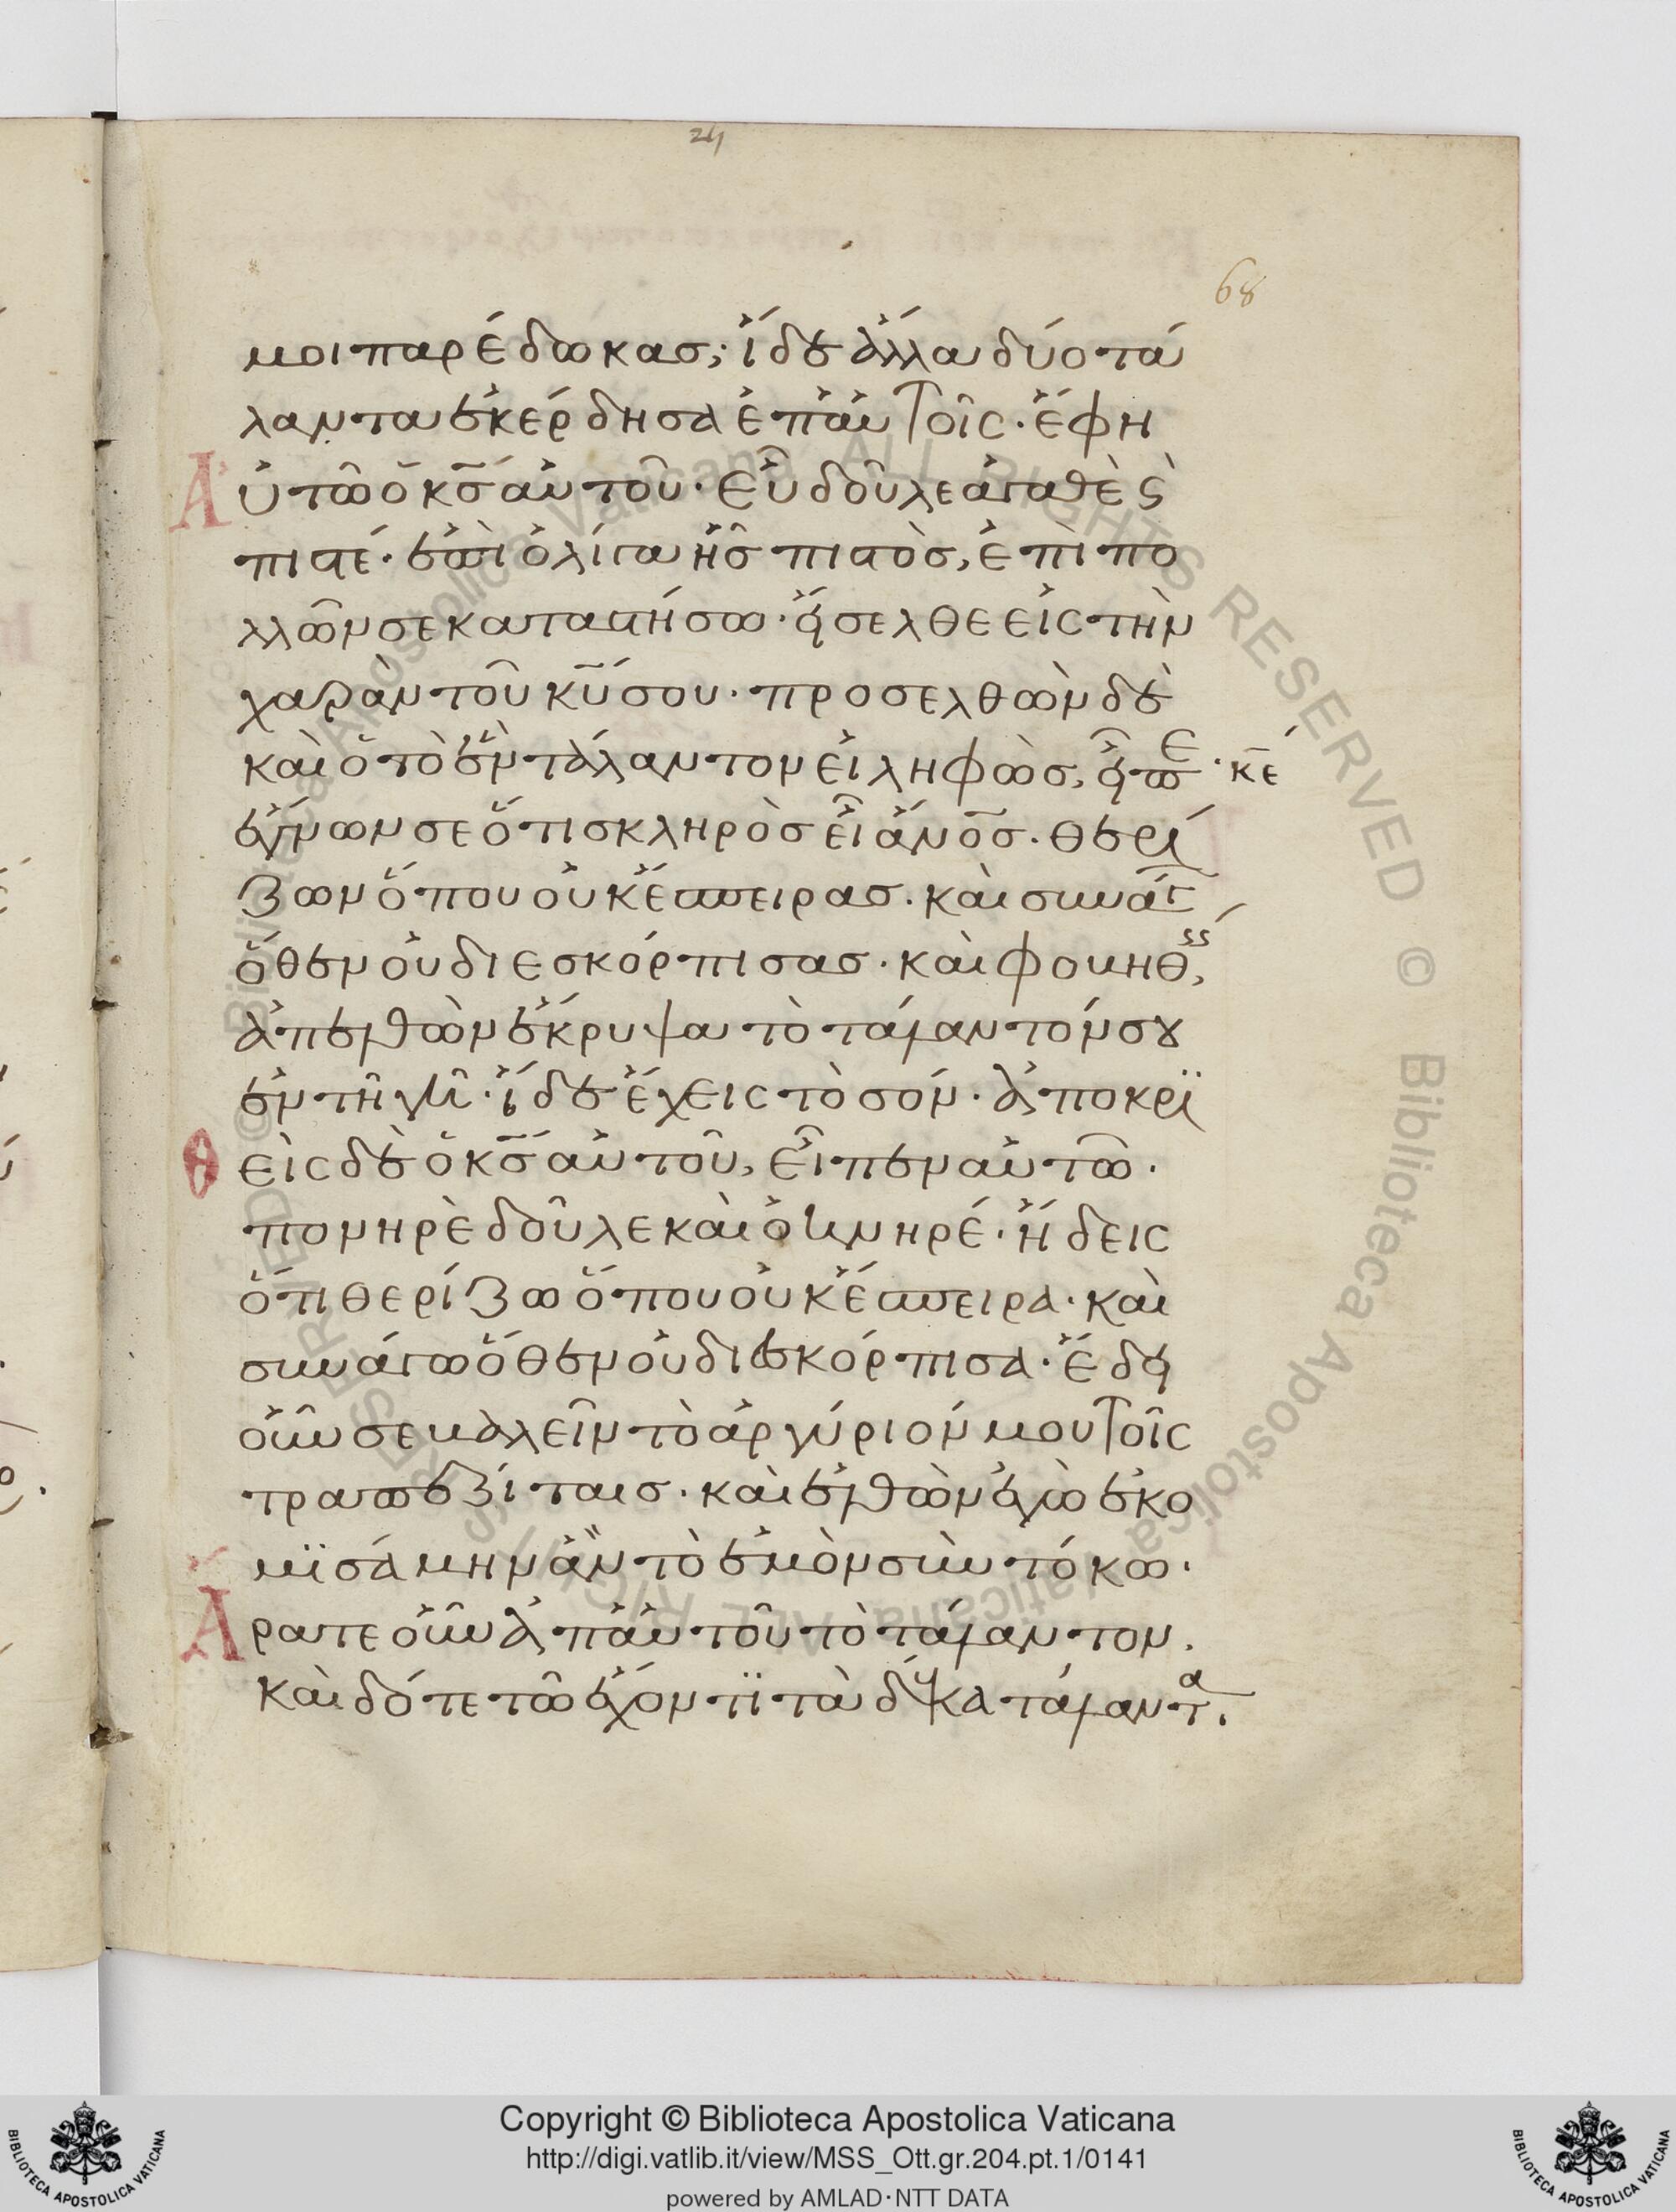 24
68
μοι παρέδωκασ; ἴδε ἄλλα δύο τά
λαντα ἐκέρδησα ἐπ' αὐτοῖς. ἔφη
Αὐτῶ ὁ κσ̅ αὐτοῦ. εὖ δοῦλε ἀγαθὲ ϗ
πιστέ. ἐπὶ ὀλίγα ἦσ πιστὸσ, ἐπὶ πο
λλῶν σε καταστήσω. εἴσελθε εἰς τὴν
χαρὰν τοῦ κυ̅ σου. προσελθὼν δὲ
καὶ ὁ τὸ ἓν τάλαντον εἰληφὼσ, εἶπε. κε̅
ἔγνων σε ὅτι σκληρὸσ εἶ ἄνοσ̅. θερί
ζων ὅπου οὐκ ἔσπειρασ. καὶ συνάγ
ὅθεν οὐ διεσκόρπισασ. καὶ φοβηθ,
ἀπελθὼν ἔκρυψα τὸ τάλαντόν σου
ἐν τῆ γῆ. ἴδε ἔχεις τὸ σόν. ἀποκρϊ
Θεὶς δὲ ὁ κσ̅ αὐτοῦ, εἶπεν αὐτῶ.
πονηρὲ δοῦλε καὶ ὀκνηρέ. ἤδεις
ὅτι θερίζω ὅπου οὐκ ἔσπειρα. καὶ
συνάγω ὅθεν οὐ διεσκόρπισα. ἔδει
οὖν σε βαλεῖν τὸ ἀργύριόν μου τοῖς
τραπεζίταισ. καὶ ἐλθὼν ἐγὼ ἐκο
μϊσάμην ἂν τὸ ἐμὸν σὺν τόκω.
Ἄρατε οὖν ἀπ' αὐτοῦ τὸ τάλαντον.
καὶ δότε τῶ ἔχοντϊ τὰ δέκα τάλαντα.
Copyright © Biblioteca Apostolica Vaticana
http://digi.vatlib.it/view/MSS_Ott.gr.204.pt.1/0141
powered by AMLAD·NTT DATA